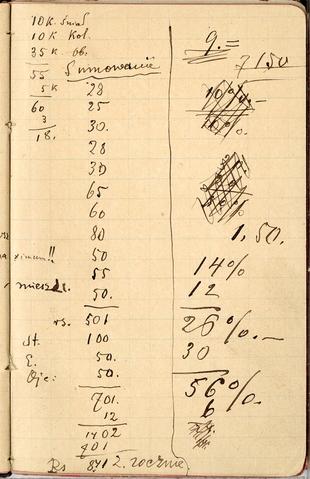 10 K. Śniad
10 K Kol.
35 K Ob.
55 Sumowanie
5 K 28
60 25
3 30.
18. 28
30
65
60
80
ximum!! 50
55
50.
rs. 501
St. 100
E. 50.
Ojc: 50.
701.
12
1402
701
Rs 8412. rocznie
9.=
7/50
10%.–
10%.
1.50.
14%
12
26%.–
30
56%.
6